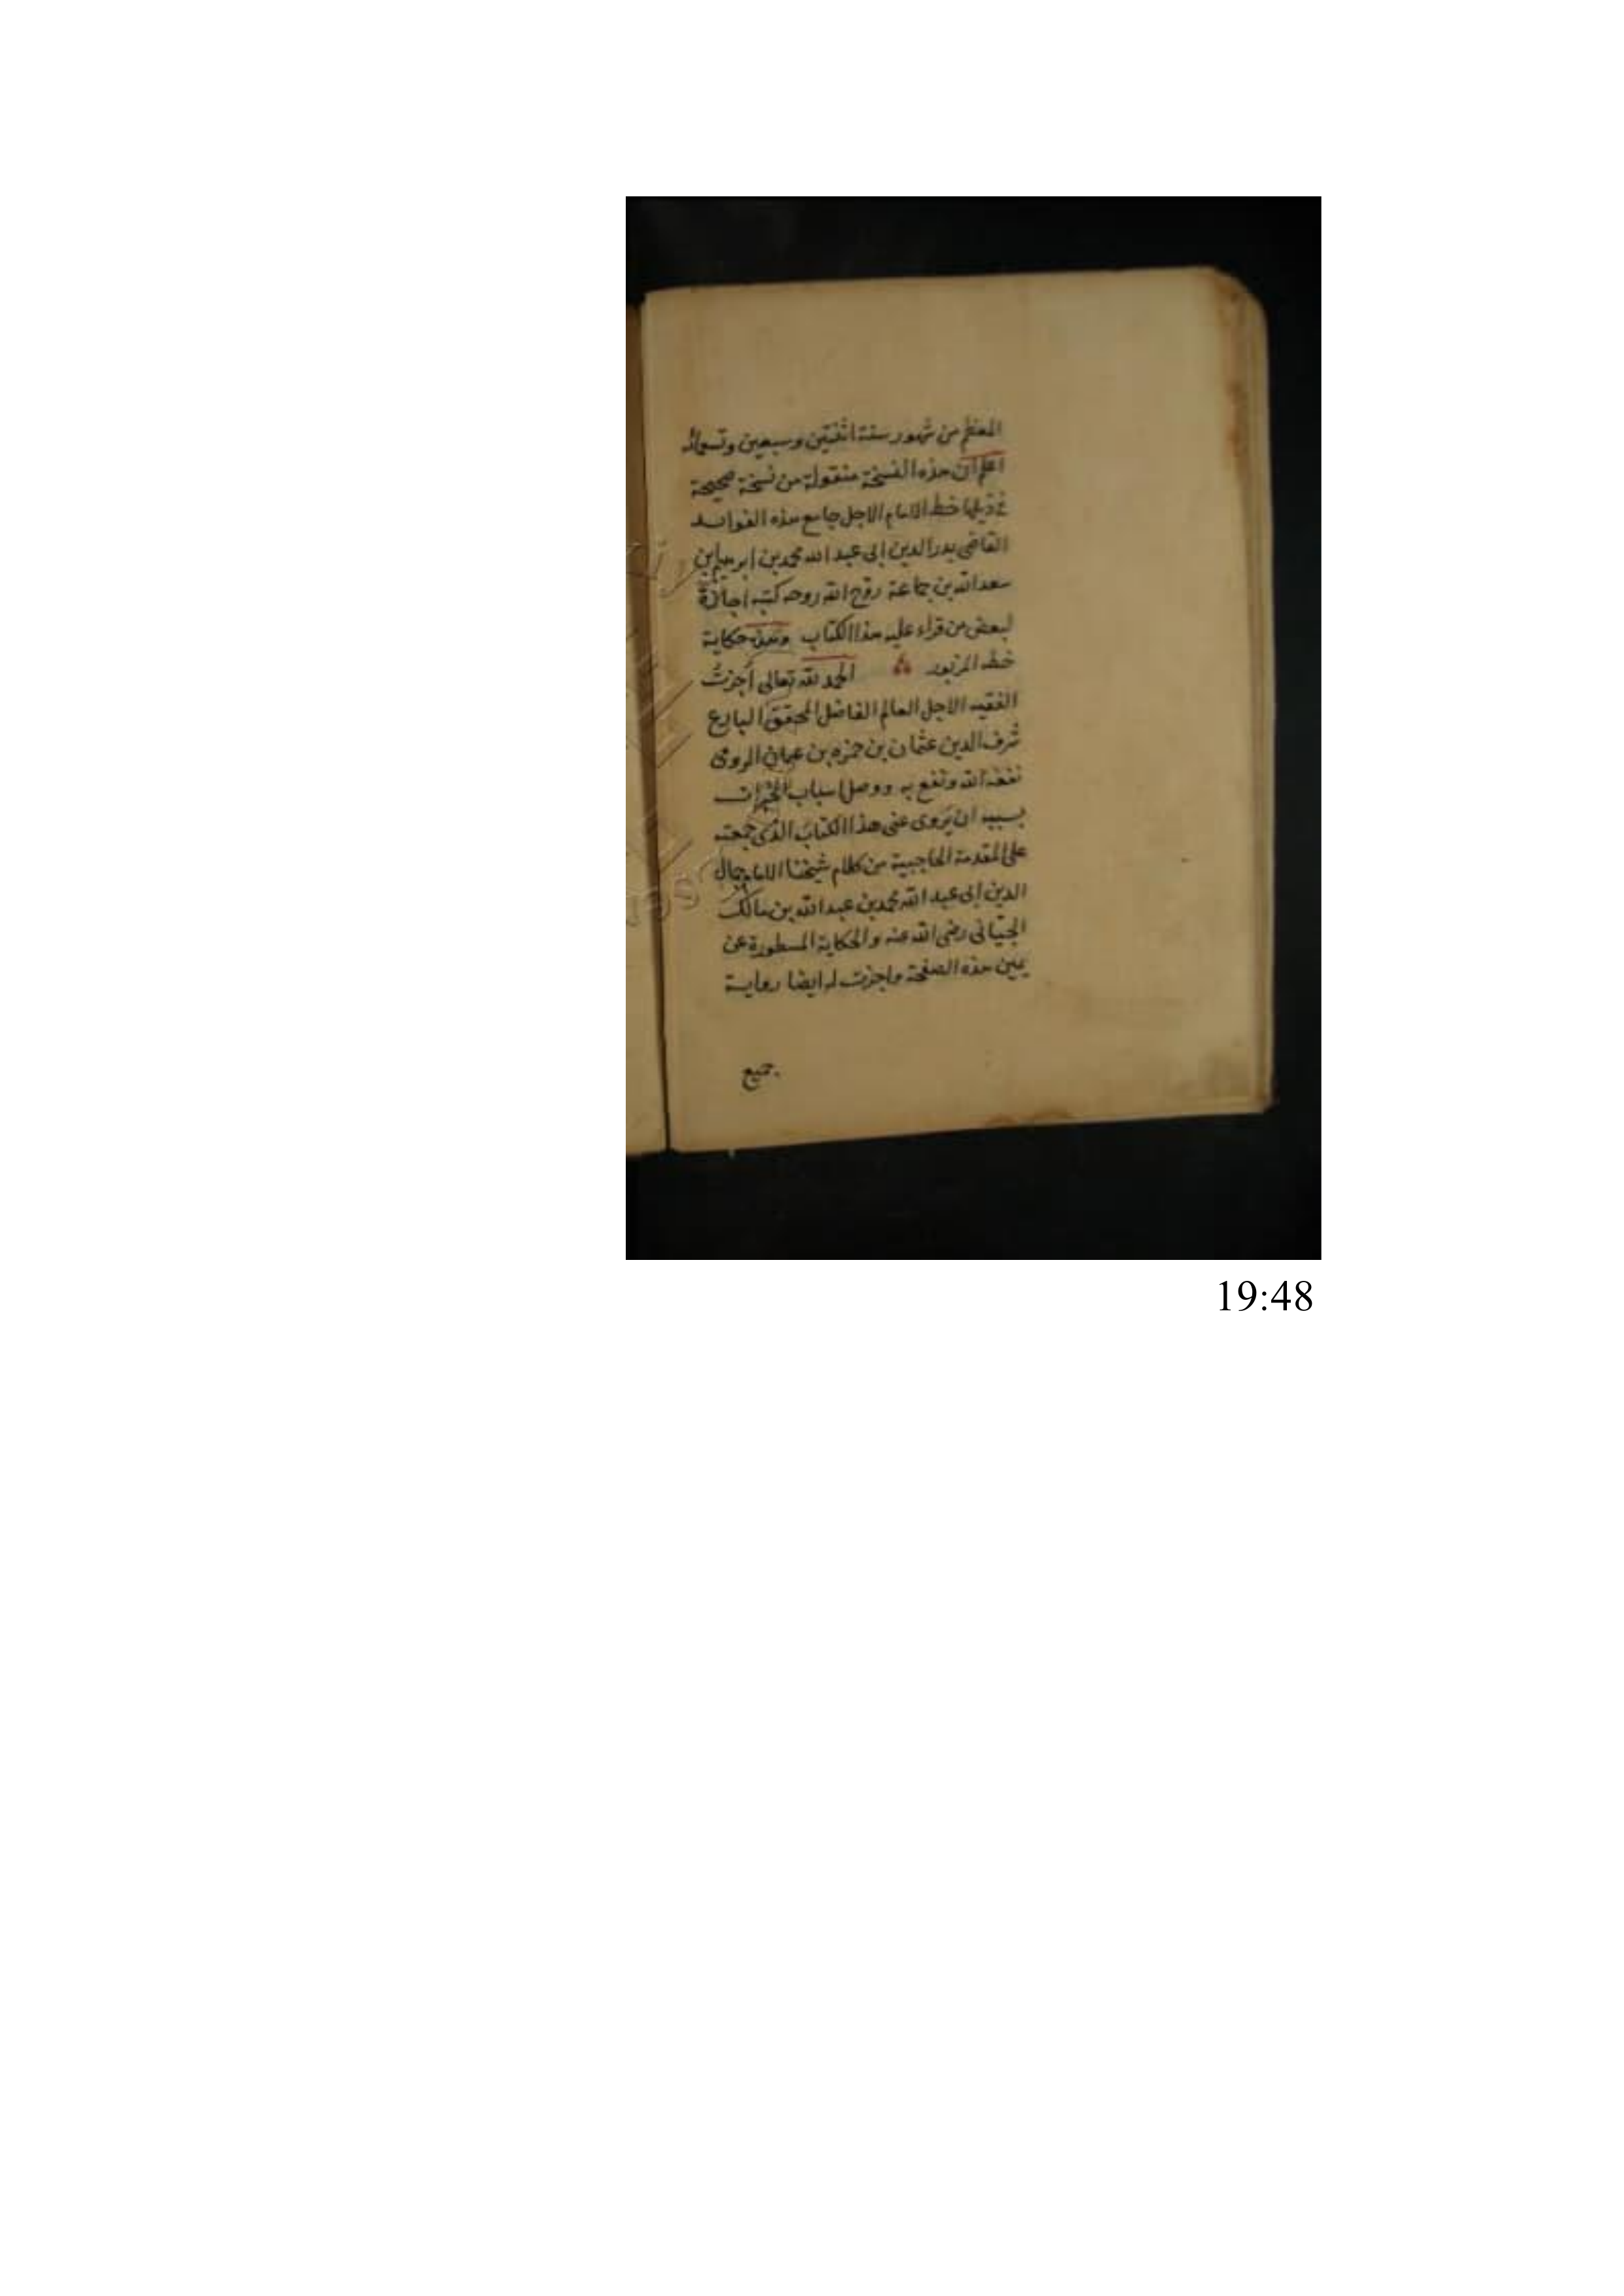 المعظم من شهور سنة اثنتين وسبعين وتسعمائة
اعلم ان هذه النسخة منقولة من نسخة صحيحة
في ذيلها خط الامام الاجل جامع هذه الفوائد
القاضي بدر الدين ابى عبد الله محمد بن ابرهيم بن
سعد الله بن جماعة روّح الله روحه كتبه اجازة
لبعض من قراء عليه هذا الكتاب وهذه حكاية
خطه المزبور الحمد لله تعالى أجزتُ
الفقيه الاجل العالم الفاضل المحقق البارع
شرف الدين عثمان بن حمزه بن عثمان الرومى
نفعه الله ونفع به ووصل اسباب الخيرات
بسببه ان يَروى عنى هذا الكتاب الذى جمعته
على المقدمة الحاجبية من كلام شيخنا الامام جمال
الدين ابى عبد الله محمد بن عبد الله بن مالك
الجيّانى رضى الله عنه والحكاية المسطورة عن
يمين هذه الصفحة واجزت له ايضا رواية
جميع
19:48